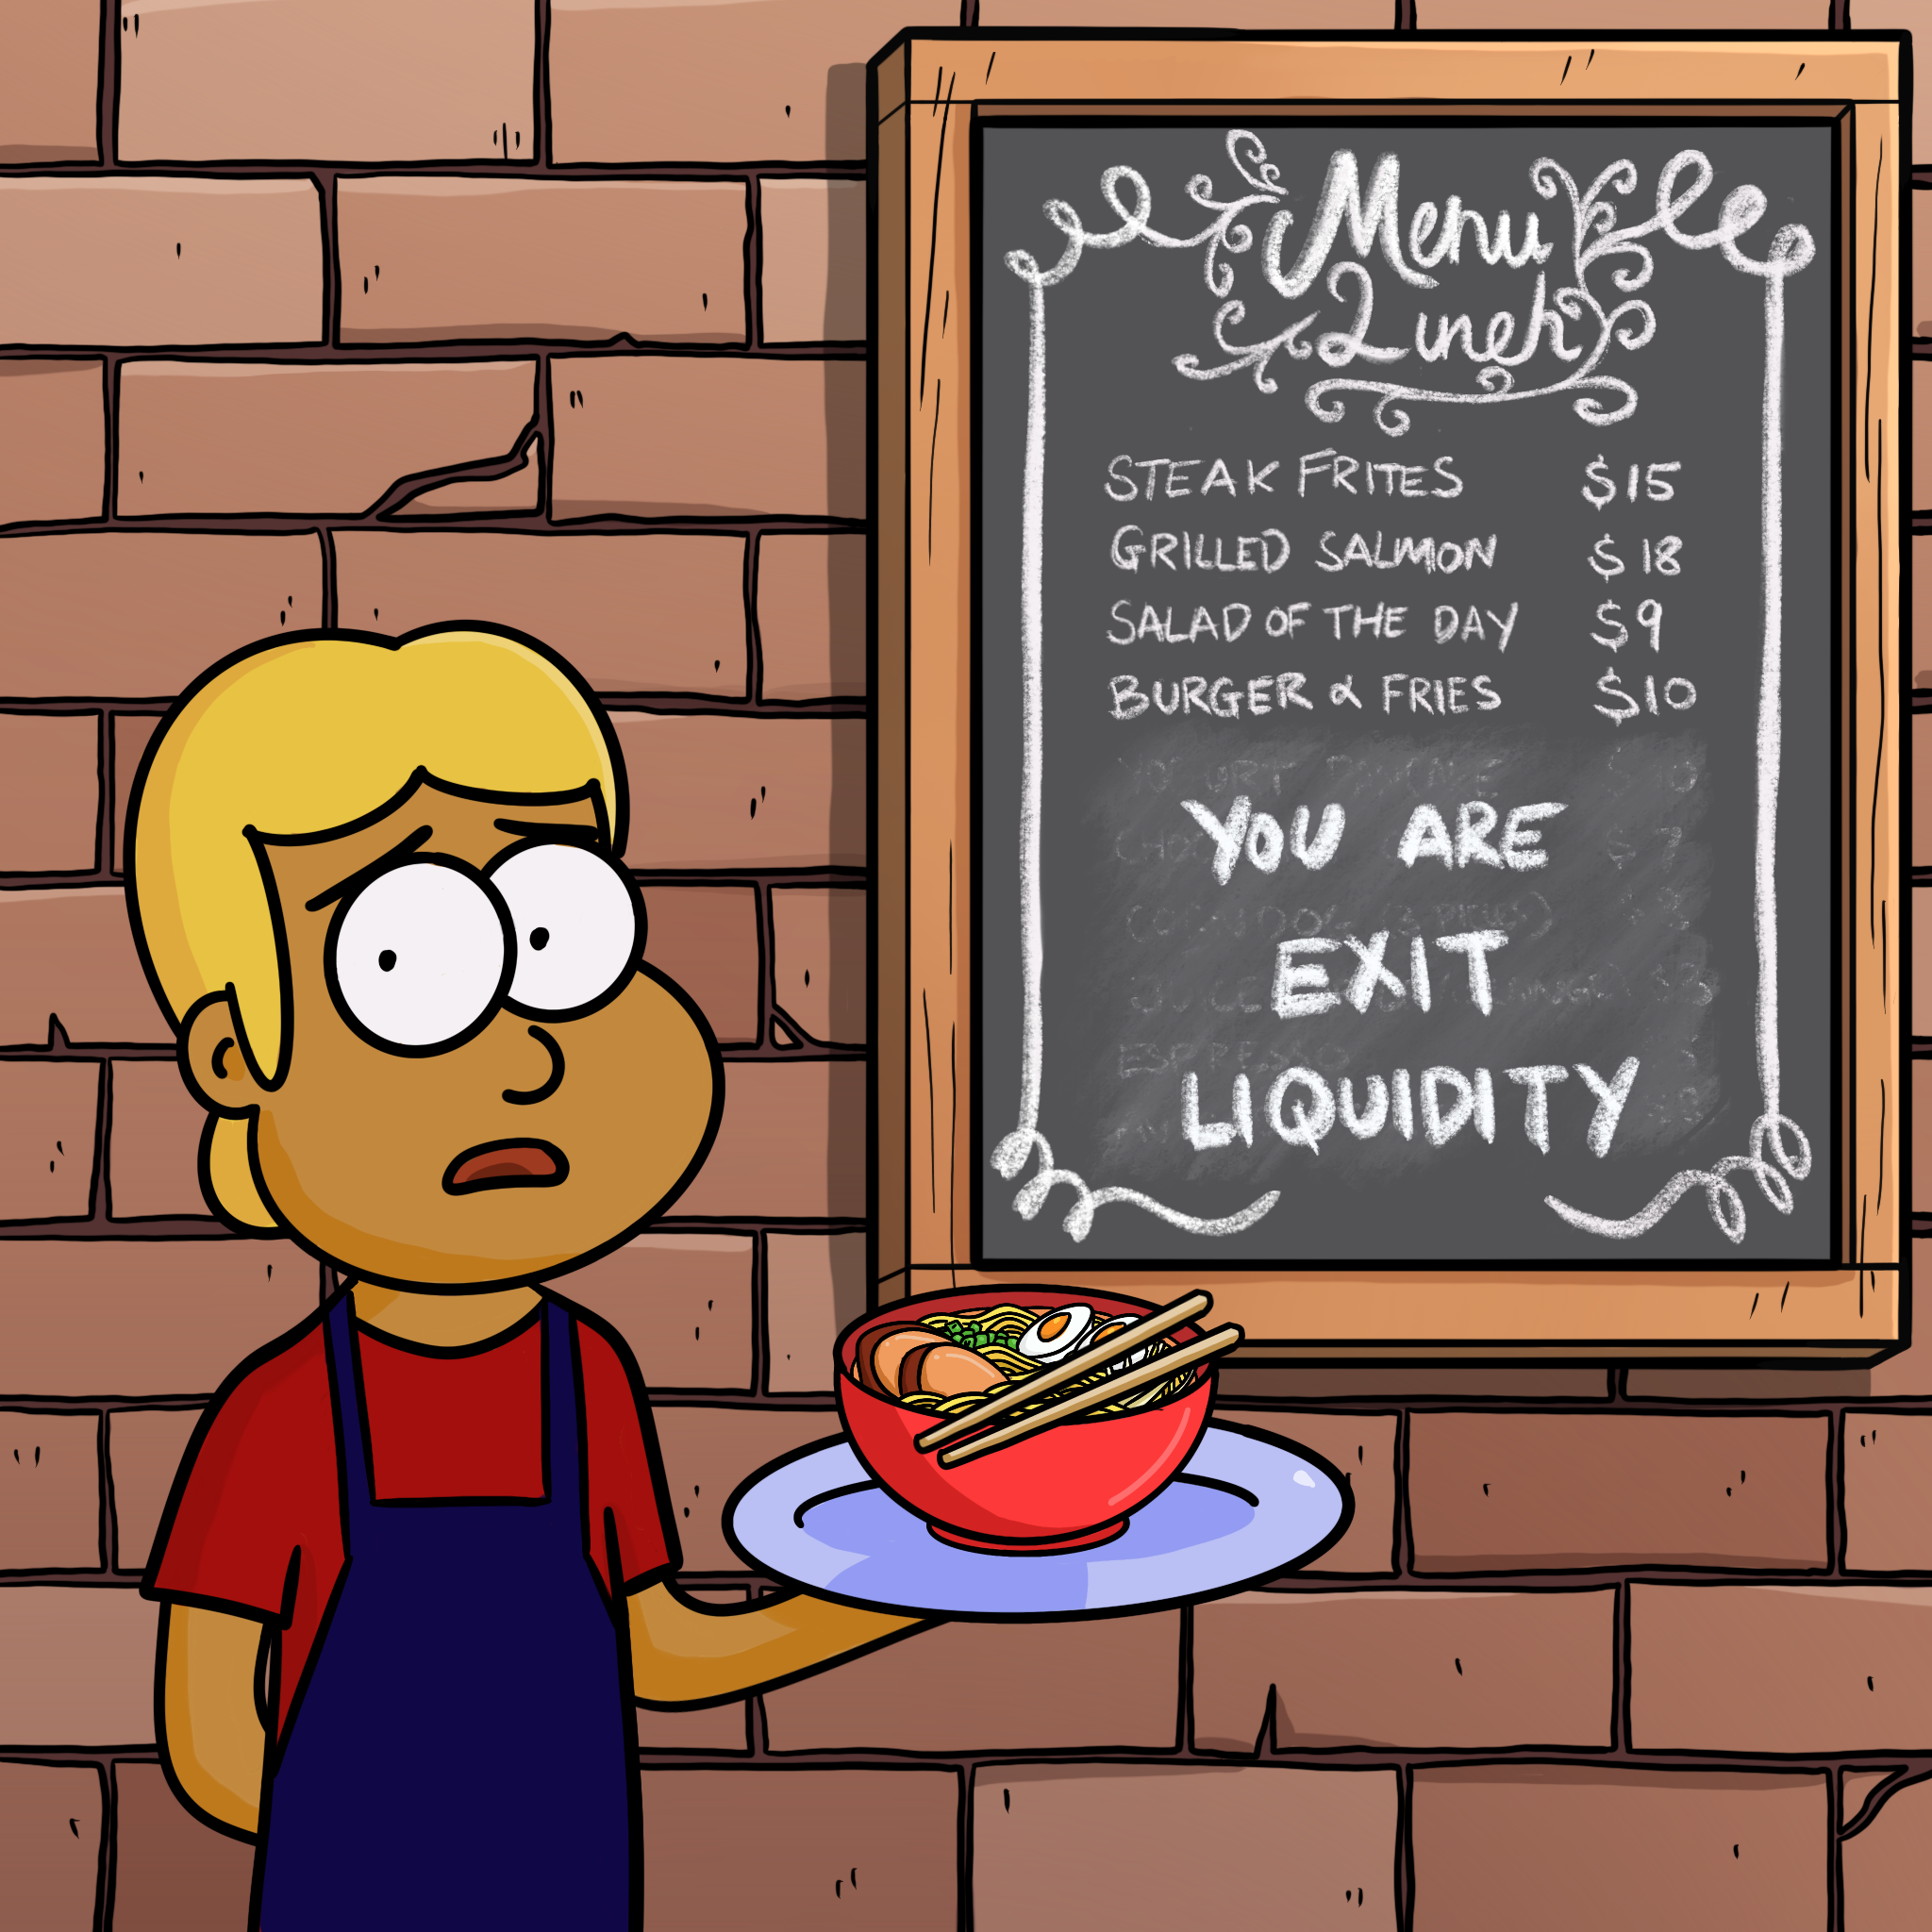 Menu
Lunch
STEAK FRITES $15
GRILLED SALMON $18
SALAD OF THE DAY $9
BURGER & FRIES $10
YOU ARE
EXIT
LIQUIDITY
ESPRESSO